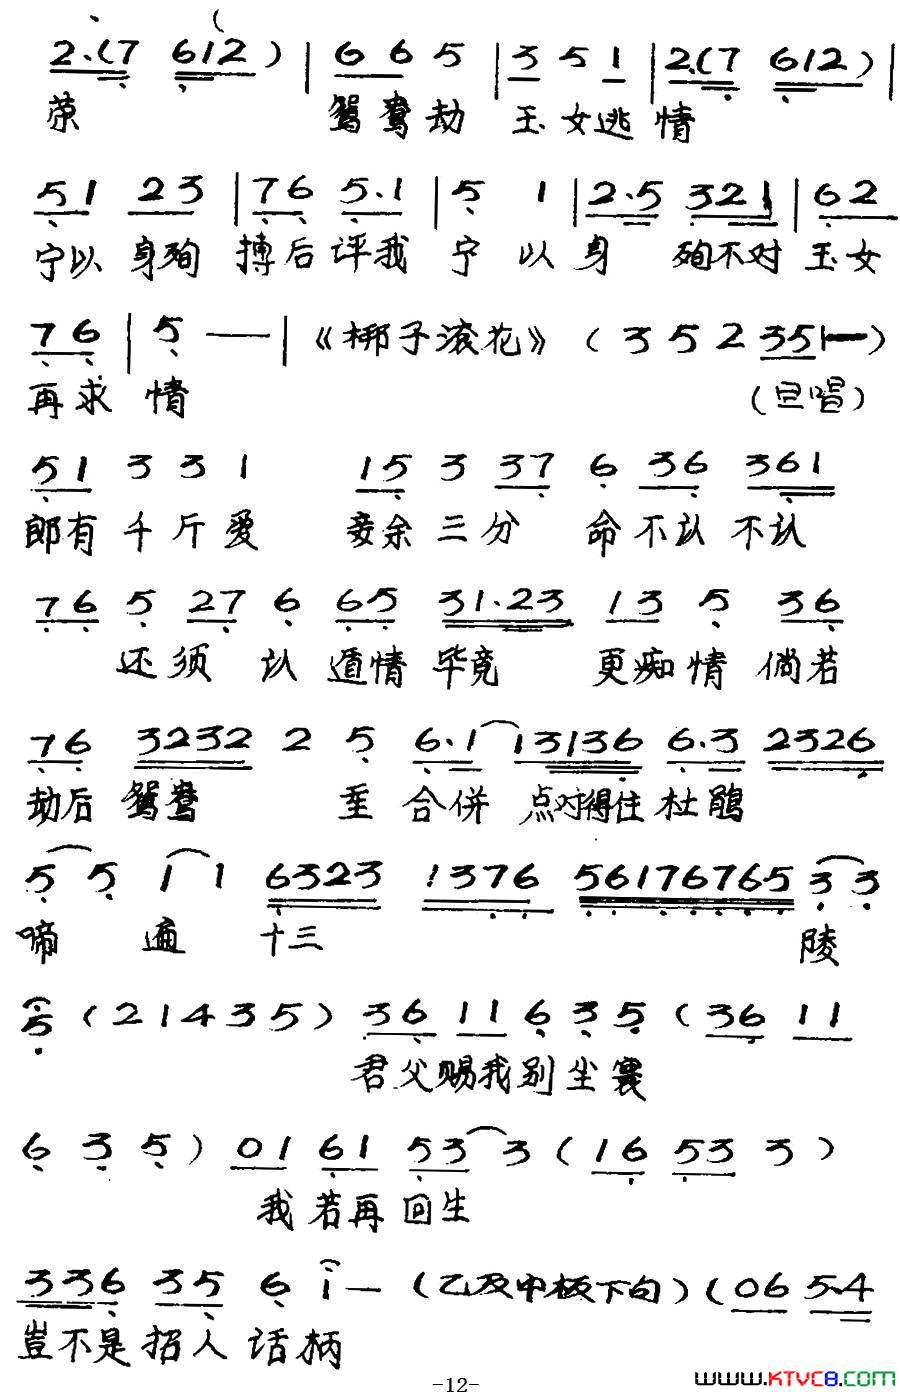 2·(7 612) | 6 6 5 | 3 5 1 | 2·(7 612) |
荣 鸳鸯劫 玉女逃情
5 1 2 3 | 7 6 5·1 | 5 1 | 2·5 3 2 1 | 6 2
宁以身殉 搏后评我 宁以身 殉不对玉女
7 6 | 5 — | 《梆子滚花》 ( 3 5 2 3 5 1 — )
再求情 (旦唱)
5 1 3 3 1 1 5 3 3 7 6 3 6 3 6 1
郎有千斤爱 妾余三分 命不认不认
7 6 5 2 7 6 6 5 3 1·2 3 1 3 5 3 6
还须认遁情毕竟 更痴情倘若
7 6 3 2 3 2 2 5 6·1 1 3 1 3 6 6·3 2 3 2 6
劫后鸳鸯 至合併点对得住杜鹃
5 5 1 1 6 3 2 3 1 3 7 6 5 6 1 7 6 7 6 5 3 3
啼遍十三 陵
5 ( 2 1 4 3 5 ) 3 6 1 1 6 3 5 ( 3 6 1 1
君父赐我别尘寰
6 3 5 ) 0 1 6 1 5 3 3 ( 1 6 5 3 3 )
我若再回生
3 3 6 3 5 6 1 — (乙及中板下句) ( 0 6 5·4
岂不是招人话柄
-12-
www.KTVC8.COM